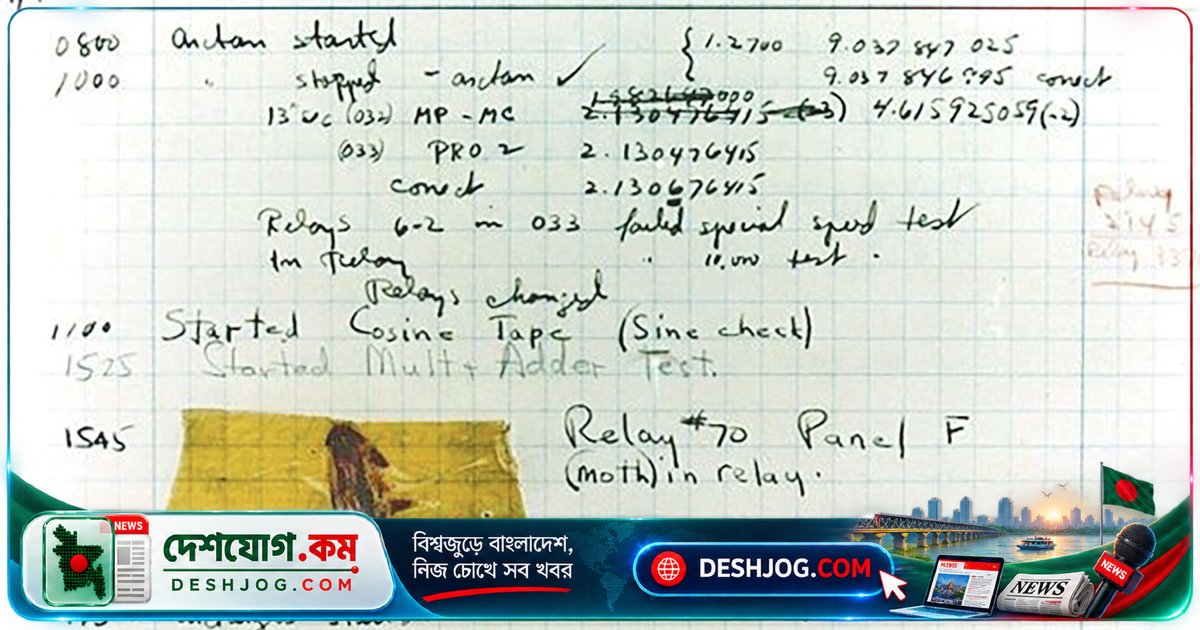 0800 arctan started { 1.2700 9.037 847 025
1000 " stopped - arctan ✓ 9.037 846 995 correct
13"uc (032) MP - MC 1.982647000 2.130476415 (-3) 4.615925059(-2)
(033) PRO 2 2.130476415
correct 2.130676415
Relays 6-2 in 033 failed special speed test
In Relay " 10,000 test .
Relay
2145
Relay
Relays changed
1100 Started Cosine Tape (Sine check)
1525 Started Mult + Adder Test.
1545 Relay #70 Panel F
(moth) in relay.
NEWS
দেশযোগ.কম
DESHJOG.COM
বিশ্বজুড়ে বাংলাদেশ,
নিজ চোখে সব খবর
DESHJOG.COM
NEWS
NEWS